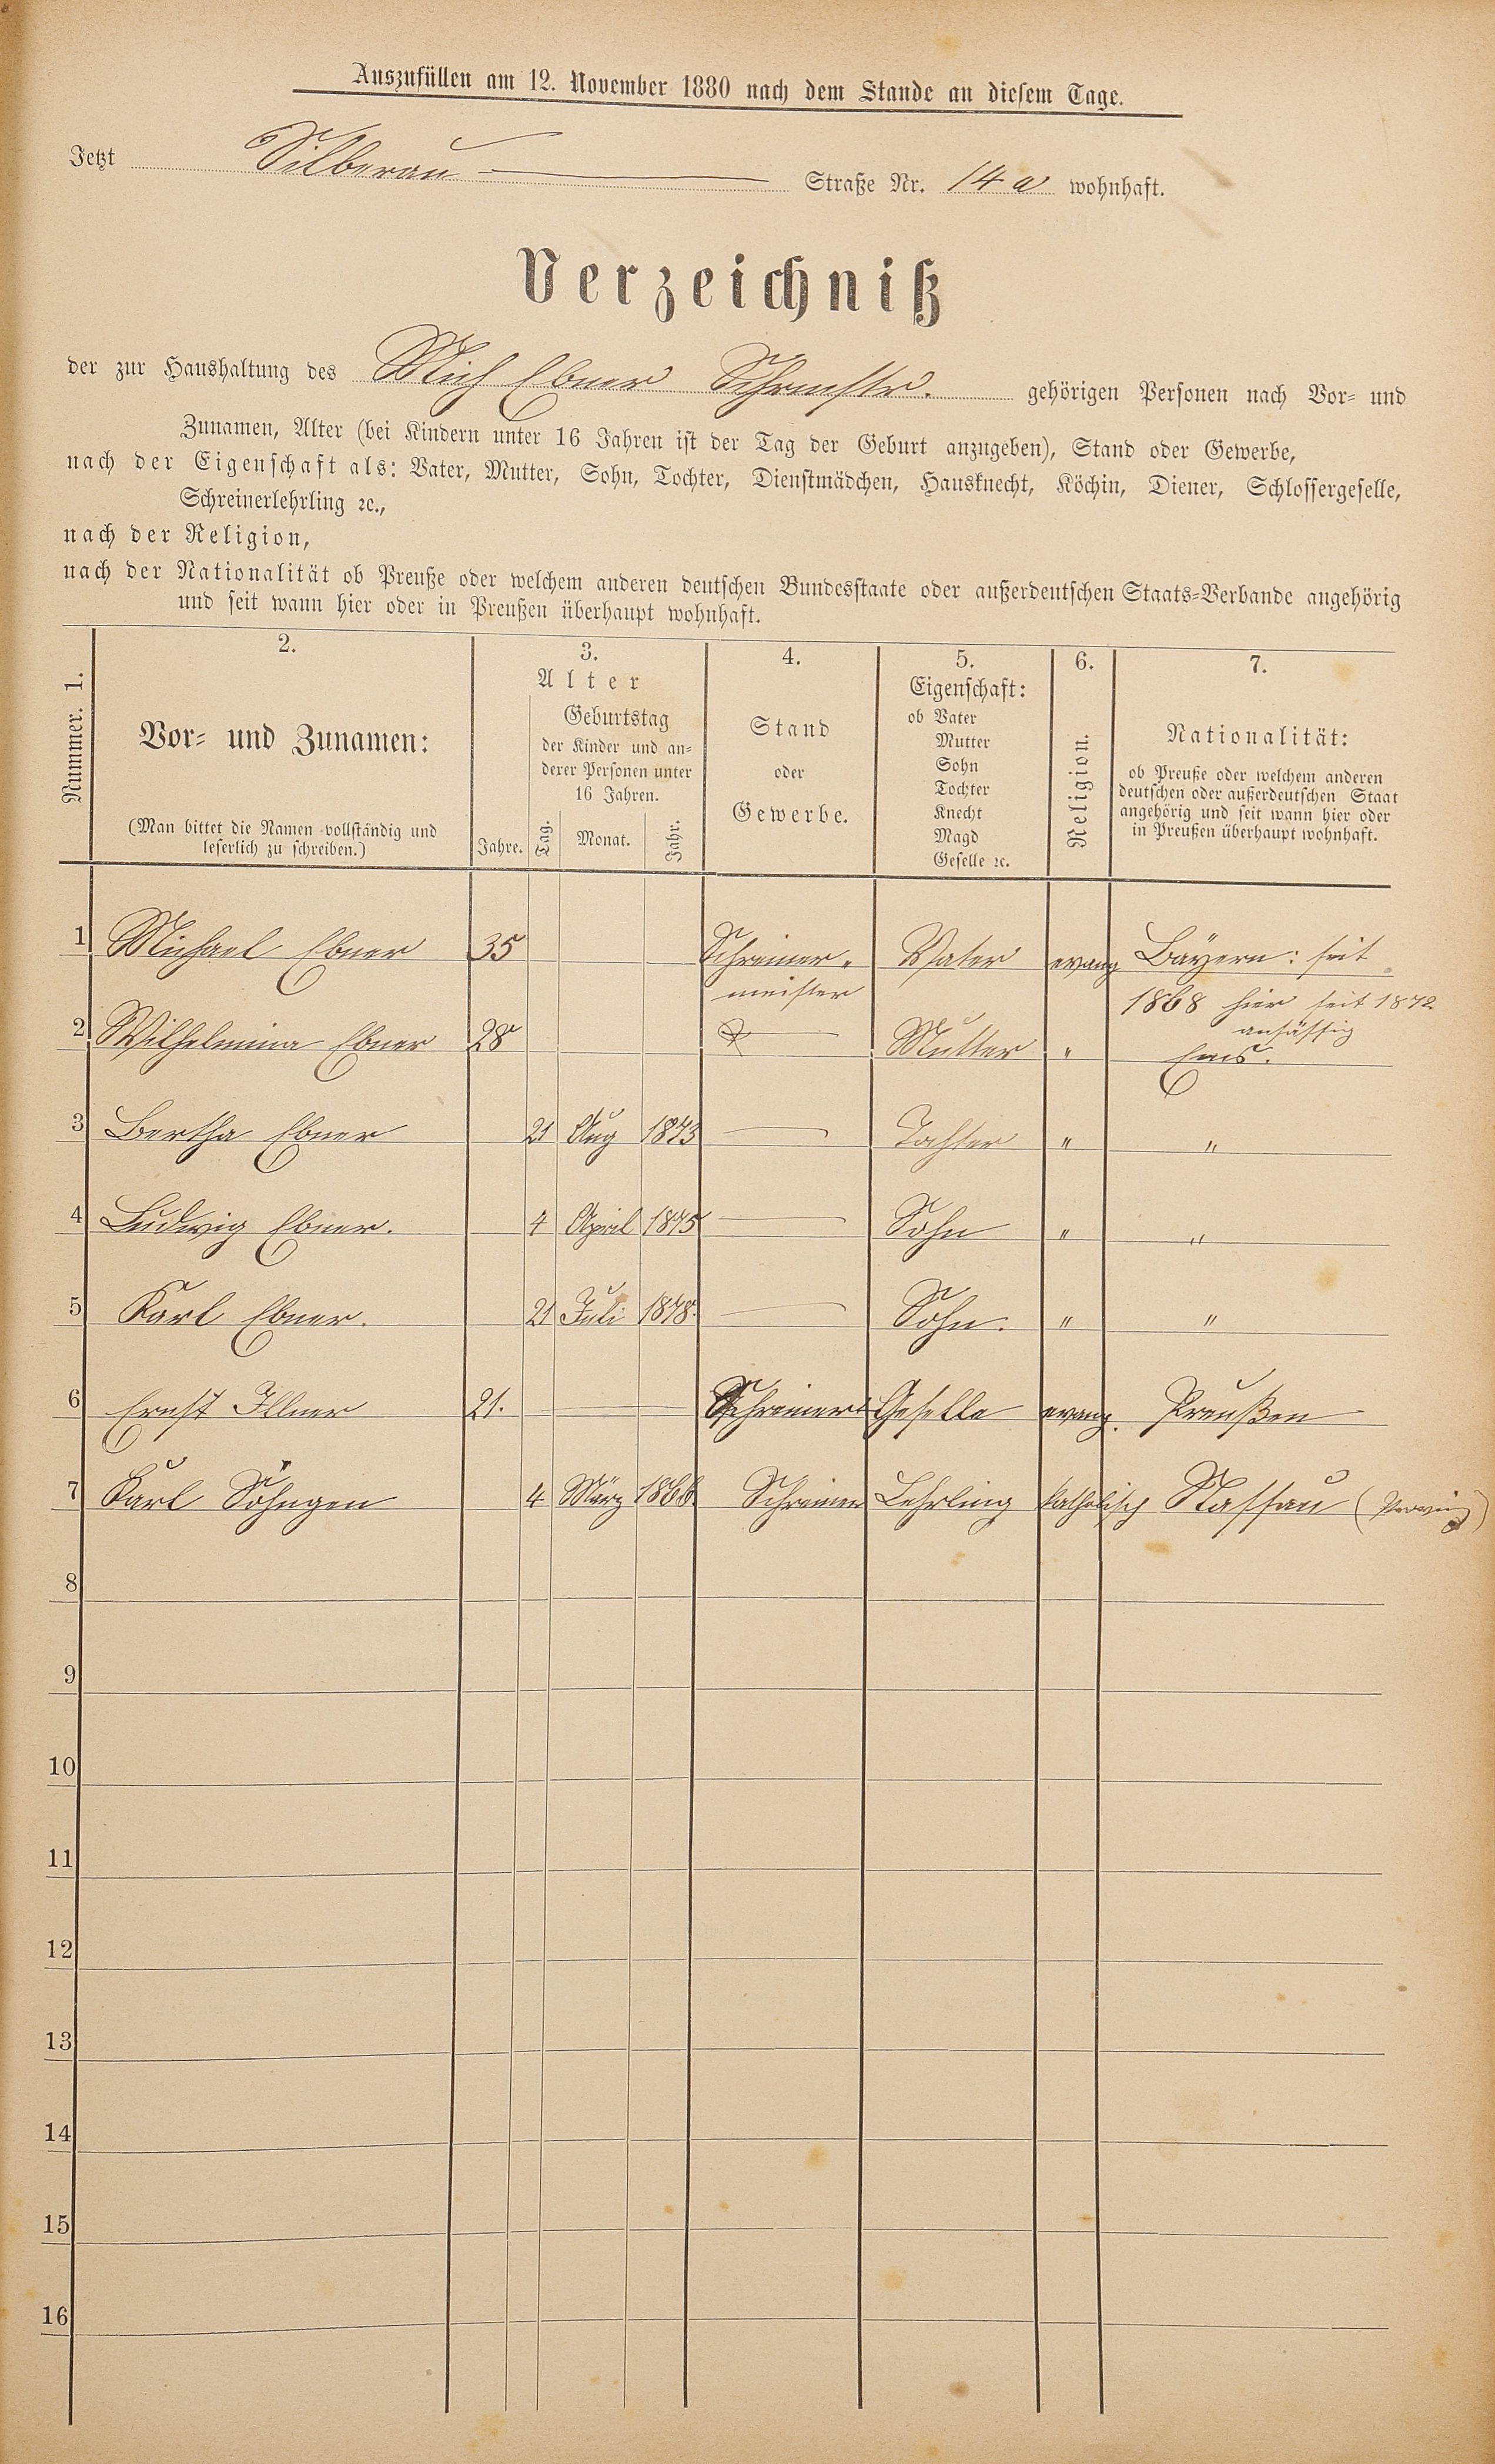 Auszufüllen am 12. November 1880 nach dem Stande an diesem Tage.
Jetzt Silberau Straße Nr. 14 a wohnhaft.
Verzeichniß
der zur Haushaltung des Mich Ebner Schrmstr. gehörigen Personen nach Vor- und
Zunamen, Alter (bei Kindern unter 16 Jahren ist der Tag der Geburt anzugeben), Stand oder Gewerbe,
nach der Eigenschaft als: Vater, Mutter, Sohn, Tochter, Dienstmädchen, Hausknecht, Köchin, Diener, Schlossergeselle,
Schreinerlehrling ꝛc.,
nach der Religion,
nach der Nationalität ob Preuße oder welchem anderen deutschen Bundesstaate oder außerdeutschen Staats-Verbande angehörig
und seit wann hier oder in Preußen überhaupt wohnhaft.
Nummer. 1.
2.
Vor- und Zunamen:
(Man bittet die Namen vollständig und
leserlich zu schreiben.)
3.
Alter
Jahre.
Geburtstag
der Kinder und an-
derer Personen unter
16 Jahren.
Tag. Monat. Jahr.
4.
Stand
oder
Gewerbe.
5.
Eigenschaft:
ob Vater
Mutter
Sohn
Tochter
Knecht
Magd
Geselle ꝛc.
6.
Religion.
7.
Nationalität:
ob Preuße oder welchem anderen
deutschen oder außerdeutschen Staat
angehörig und seit wann hier oder
in Preußen überhaupt wohnhaft.
1 Michael Ebner 35 Schreiner- Vater evang Bayern: seit
meister 1868 hier seit 1872
ansässig
2 Wilhelmina Ebner 28 Mutter " Ems.
3 Bertha Ebner 21 Aug 1873 Tochter " "
4 Ludwig Ebner. 4 April 1875 Sohn " "
5 Karl Ebner. 21 Juli 1878. Sohn. " "
6 Ernst Illner 21. Schreiner Geselle evang. Preußen
7 Karl Söhngen 4 März 1866 Schreiner Lehrling katholisch Nassau (Provinz)
8
9
10
11
12
13
14
15
16